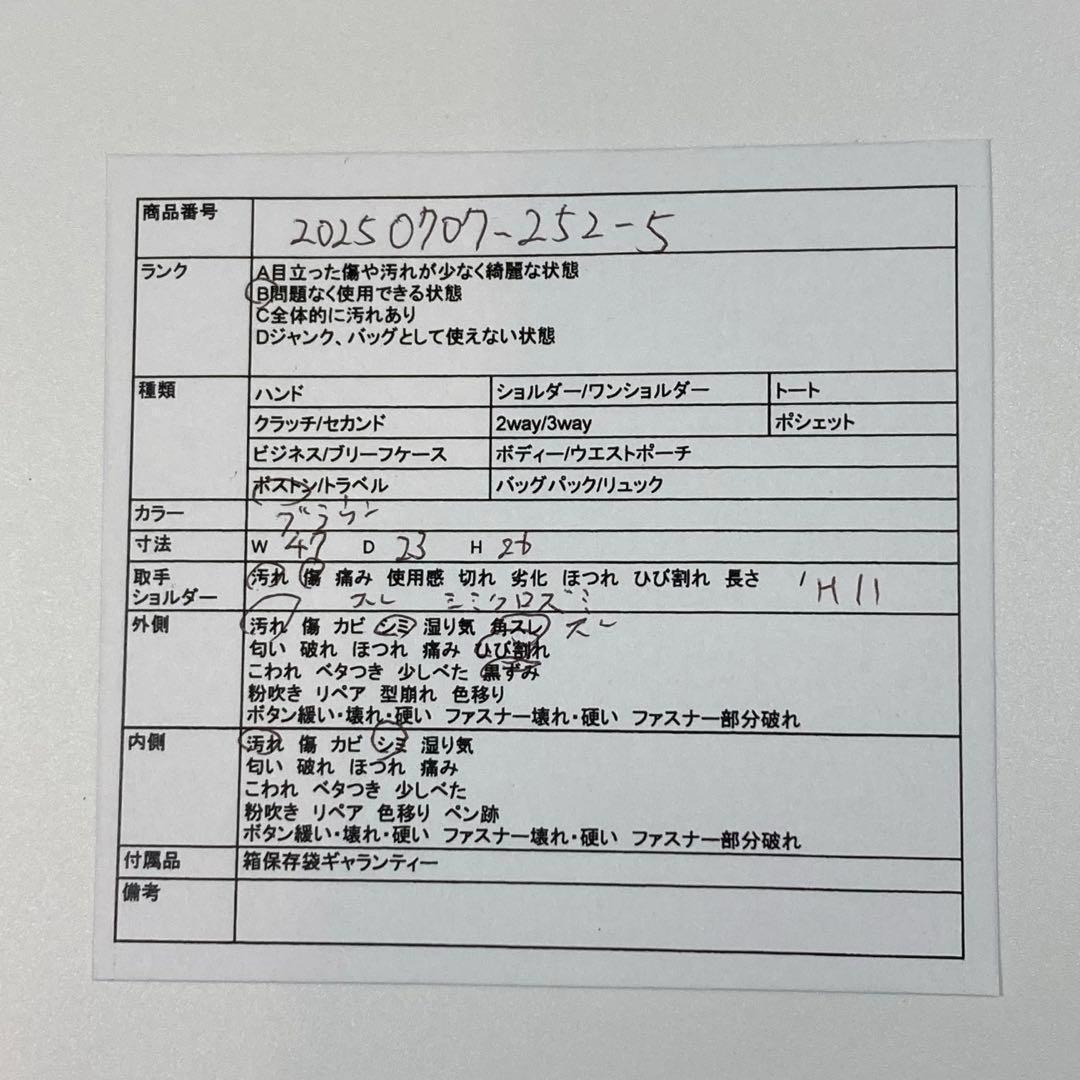 商品番号 20250707-252-5
ランク A目立った傷や汚れが少なく綺麗な状態
B問題なく使用できる状態
C全体的に汚れあり
Dジャンク、バッグとして使えない状態
種類 ハンド ショルダー/ワンショルダー トート
クラッチ/セカンド 2way/3way ポシェット
ビジネス/ブリーフケース ボディー/ウエストポーチ
ボストン/トラベル バッグパック/リュック
カラー ブラウン
寸法 W 47 D 23 H 26
取手 汚れ 傷 痛み 使用感 切れ 劣化 ほつれ ひび割れ 長さ H11
ショルダー スレ シミクロズミ
外側 汚れ 傷 カビ シミ 湿り気 角スレ スレ
匂い 破れ ほつれ 痛み ひび割れ
こわれ ベタつき 少しべた 黒ずみ
粉吹き リペア 型崩れ 色移り
ボタン緩い・壊れ・硬い ファスナー壊れ・硬い ファスナー部分破れ
内側 汚れ 傷 カビ シミ 湿り気
匂い 破れ ほつれ 痛み
こわれ ベタつき 少しべた
粉吹き リペア 色移り ペン跡
ボタン緩い・壊れ・硬い ファスナー壊れ・硬い ファスナー部分破れ
付属品 箱保存袋ギャランティー
備考